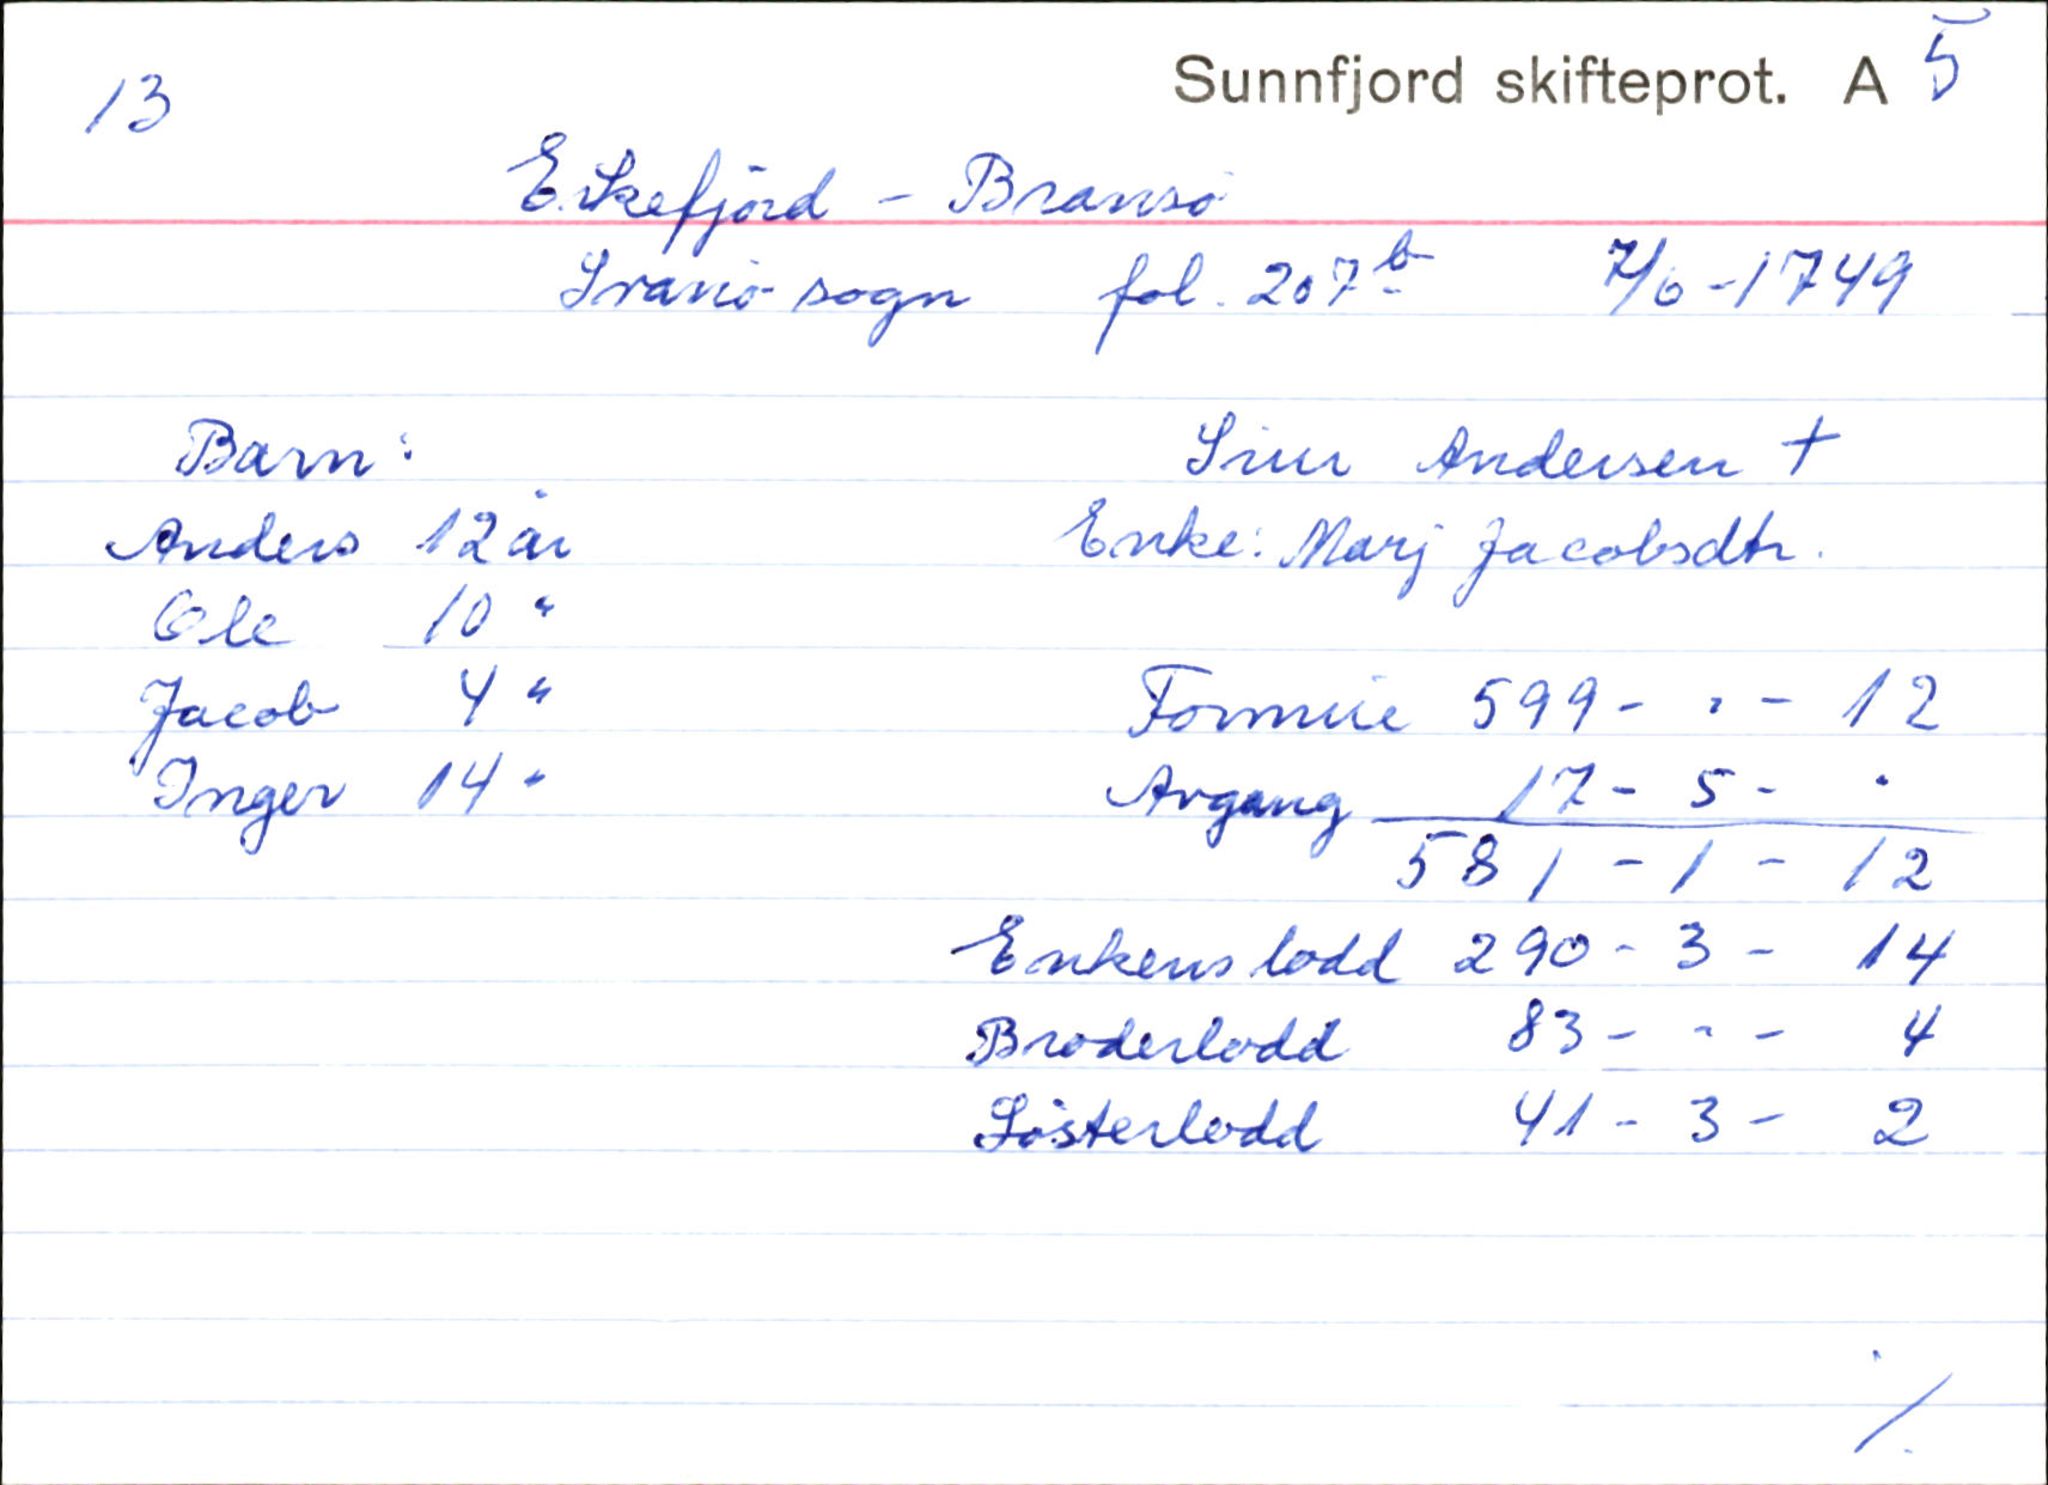 13
Sunnfjord skifteprot. A 5
Eikefjörd - Bransö
Svanö sogn fol. 207b 7/6 - 1749
Barn: Siur Andersen +
Anders 12 år Enke: Marj Jacobsdtr.
Ole 10 "
Jacob 4 " Formue 599 - " - 12
Inger 14 " Avgang 17 - 5 - "
581 - 1 - 12
Enkens lodd 290 - 3 - 14
Broderlodd 83 - " - 4
Sösterlodd 41 - 3 - 2
./.